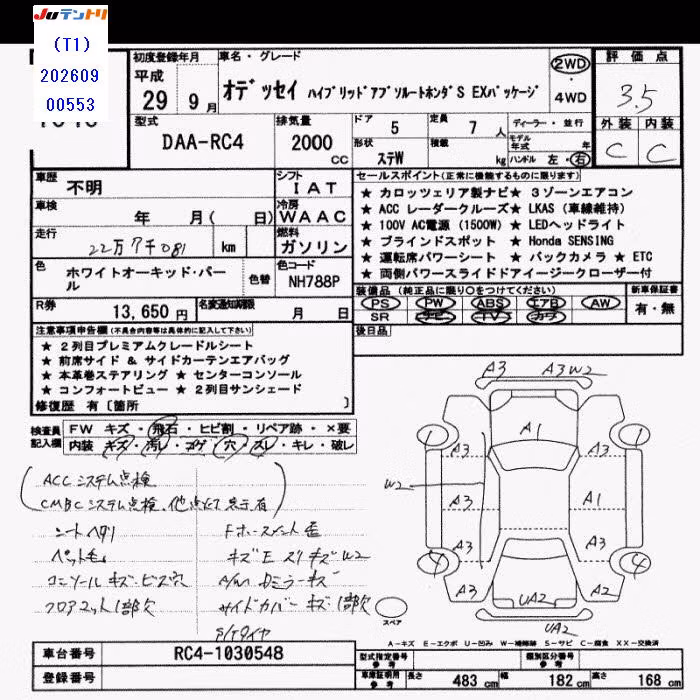 Juテントリ
(T1)
202609
00553
初度登録年月
平成
29 9月
車名・グレード
オデッセイ ハイブリッドアブソルートホンダS EXパッケージ
2WD
・
4WD
評価点
3.5
外装 内装
C C
型式
DAA-RC4
排気量
2000 CC
ドア 5
定員 7人
形状 ステW
積載 kg
ディーラー・並行
モデル年式 年
ハンドル 左・右
車歴 不明
シフト IAT
車検 年 月( 日)
冷房 WAAC
走行 22万7千081 km
燃料 ガソリン
色 ホワイトオーキッド・パール
色替
色コード NH788P
R券 13,650円
名変通知期限 月 日
セールスポイント(正常に機能するものに限ります)
★ カロッツェリア製ナビ★ 3ゾーンエアコン
★ ACC レーダークルーズ★ LKAS (車線維持)
★ 100V AC電源 (1500W) ★ LEDヘッドライト
★ ブラインドスポット ★ Honda SENSING
★ 運転席パワーシート ★ バックカメラ ★ ETC
★ 両側パワースライドドアイージークローザー付
装備品(純正品に限り○をつけてください)
PS PW ABS エアB AW
SR ナビ TV カワ
新車保証書
有・無
後日品
注意事項申告欄(不具合内容等は具体的に記入して下さい)
★ 2列目プレミアムクレードルシート
★ 前席サイド & サイドカーテンエアバッグ
★ 本革巻ステアリング ★ センターコンソール
★ コンフォートビュー ★ 2列目サンシェード
修復歴 有〔箇所 〕
検査員記入欄
FW キズ・飛石・ヒビ割・リペア跡・×要
内装 キズ・汚レ・コゲ・穴・スレ・キレ・破レ
ACCシステム点検
CMBCシステム点検、他点灯表示有
シートヘタリ
ペット毛
コンソールキズ・ビス穴
フロアマット1部欠
Fホースメント歪
キズE スリキズW2
A/W ドミラーキズ
サイドカバーキズ・1部欠
A3 A3W2
A1
1 1
A3 A3
W2
A3 A1
A3 A3
4 4
A3 A2
UA2
UA2
スペア
A-キズ E-エクボ U-凹み W-補修跡 S-サビ C-腐食 XX-交換済
車台番号 RC4-1030548
登録番号
型式指定番号 参考
類別区分番号 参考
車庫証明用 参考
長さ 483 cm 幅 182 cm 高さ 168 cm